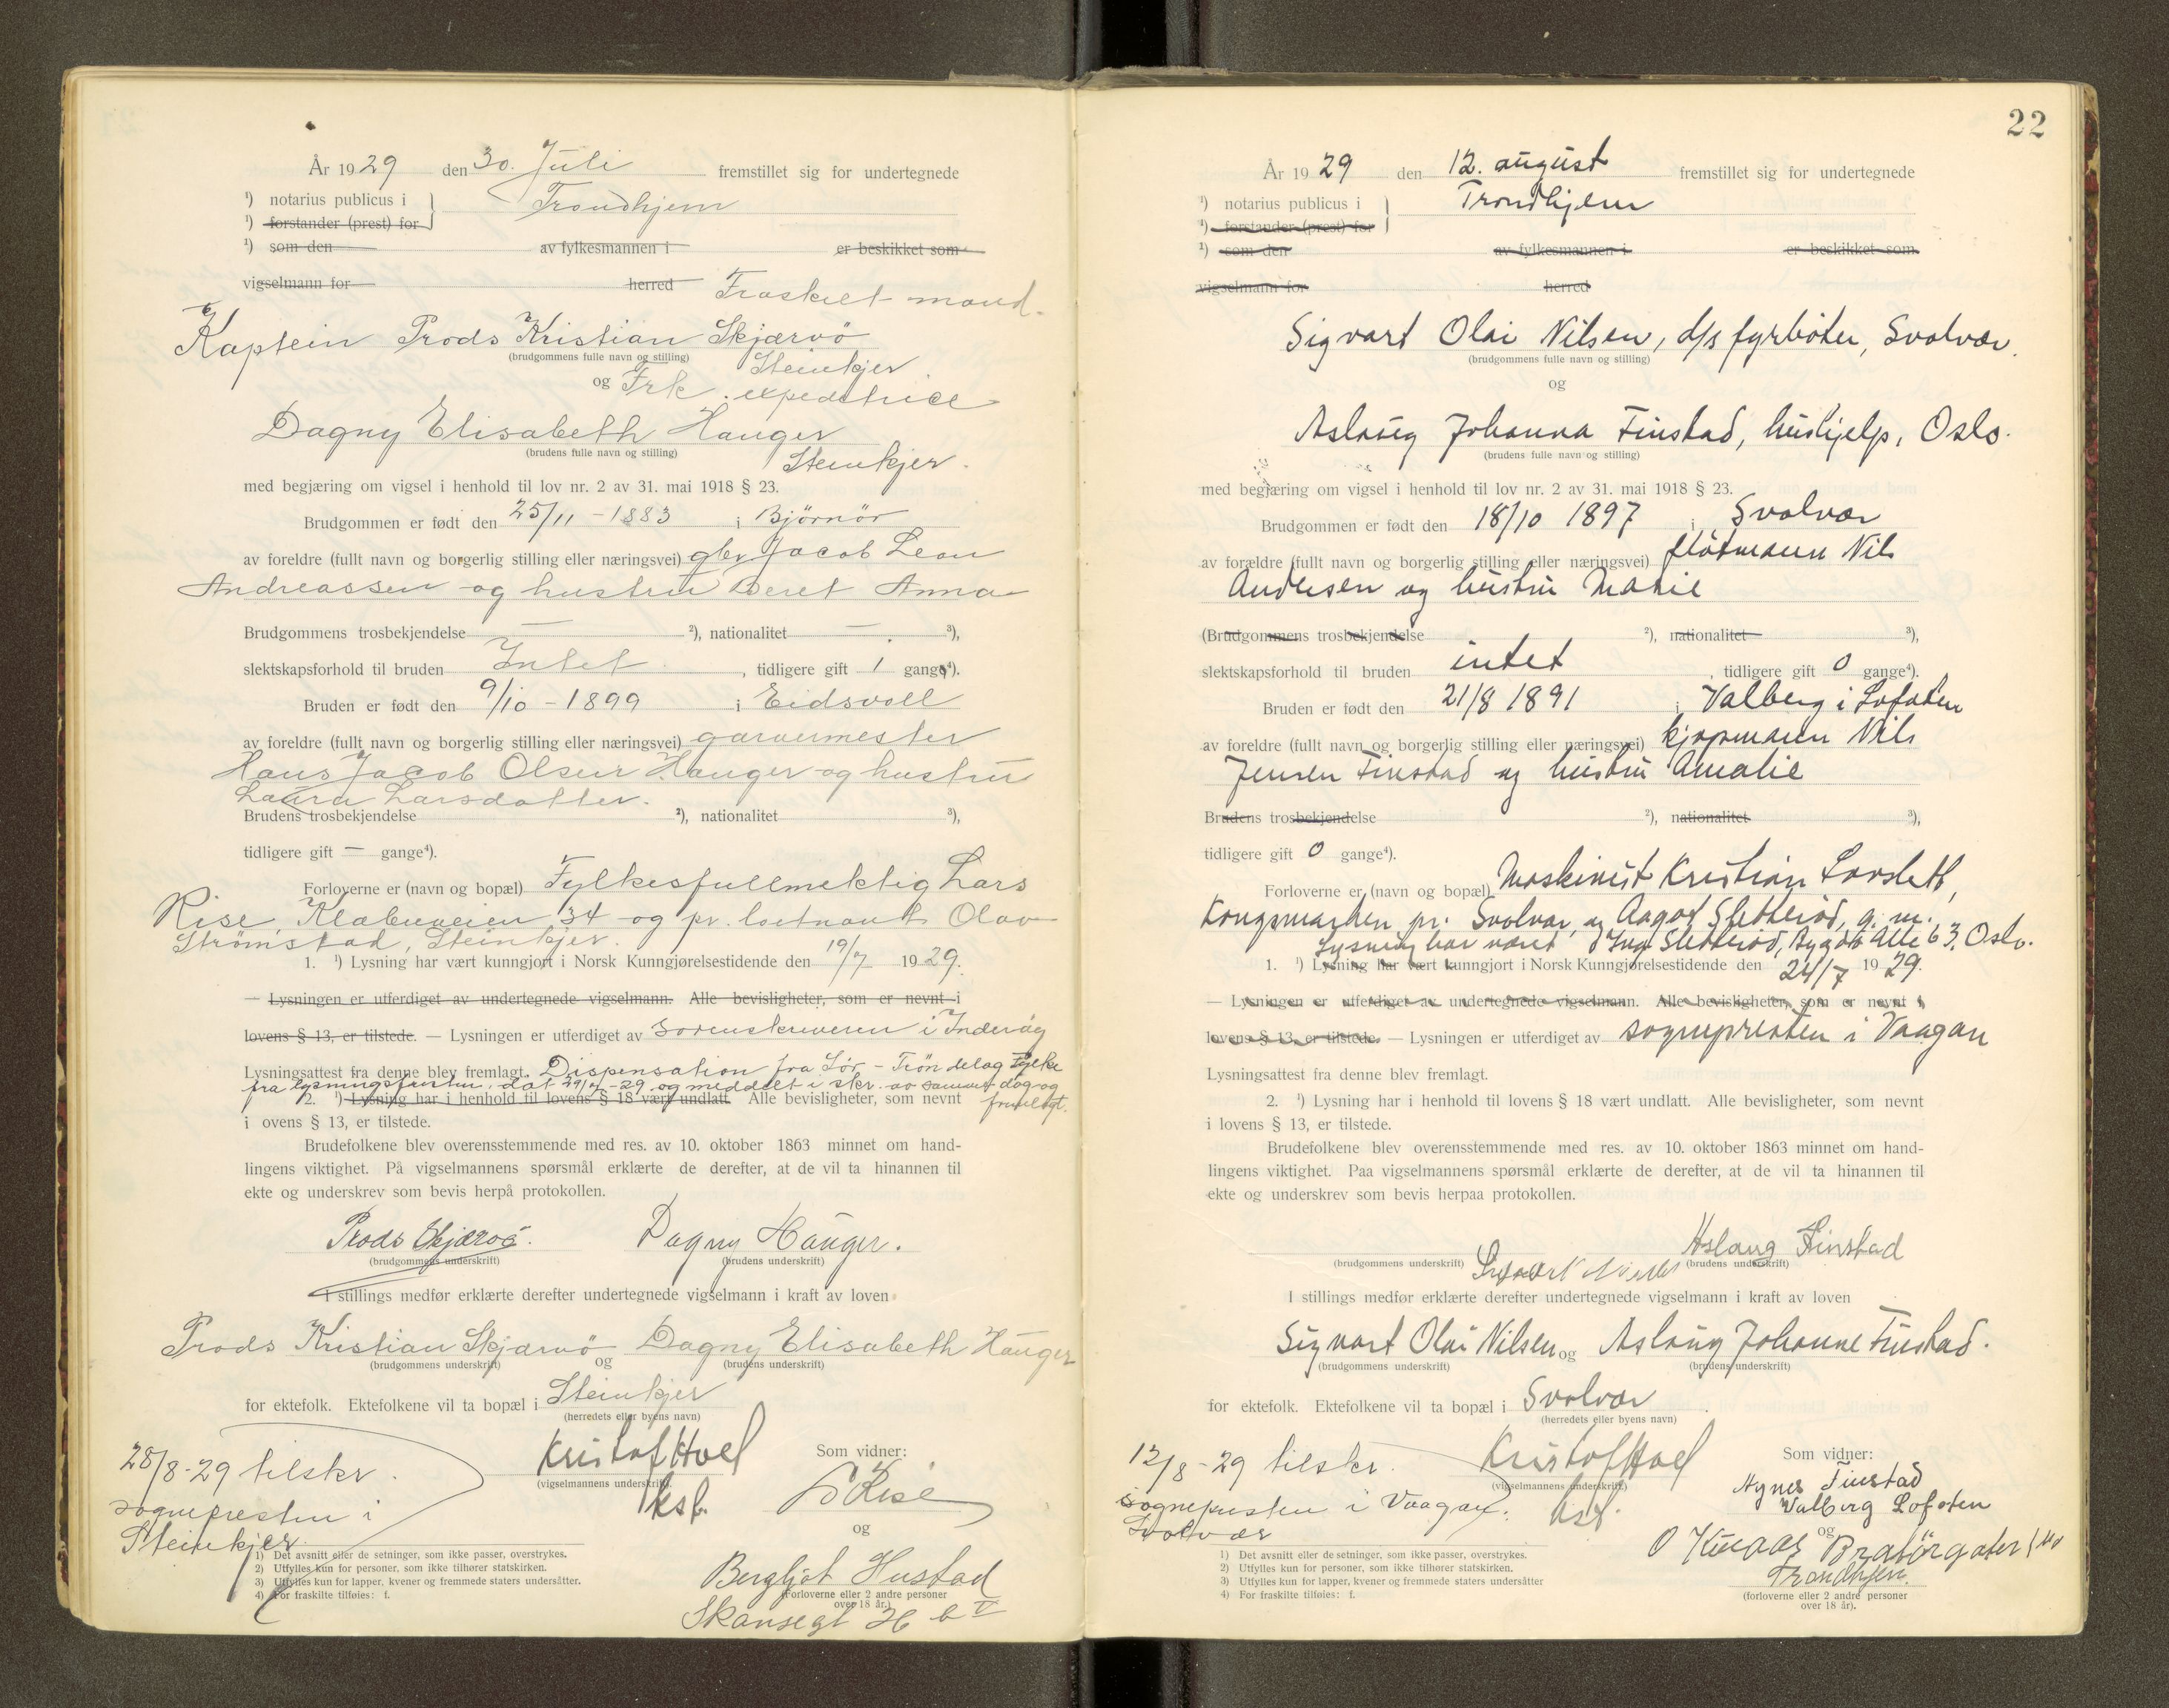 År 1929 den 30. Juli fremstillet sig for undertegnede
¹) notarius publicus i Trondhjem
¹) forstander (prest) for
¹) som den av fylkesmannen i er beskikket som
vigselmann for herred Fraskilt mand.
Kaptein Prods Kristian Skjærvö
(brudgommens fulle navn og stilling)
Steinkjer
og Frk. expeditrice
Dagny Elisabeth Hauger
(brudens fulle navn og stilling)
Steinkjer.
med begjæring om vigsel i henhold til lov nr. 2 av 31. mai 1918 § 23.
Brudgommen er født den 25/11 - 1883 i Björnör
av foreldre (fullt navn og borgerlig stilling eller næringsvei) gbr Jacob Leon
Andreassen og hustru Beret Anna
Brudgommens trosbekjendelse — ²), nationalitet — ³),
slektskapsforhold til bruden Intet, tidligere gift 1 gange⁴).
Bruden er født den 9/10 - 1899 i Eidsvoll
av foreldre (fullt navn og borgerlig stilling eller næringsvei) garvermester
Hans Jacob Olsen Hauger og hustru
Laura Larsdatter.
Brudens trosbekjendelse ²), nationalitet ³),
tidligere gift — gange⁴).
Forloverne er (navn og bopæl) Fylkesfullmektig Lars
Rise, Klæbuveien 34 og pr. løitnant Olav
Strömstad, Steinkjer.
1. ¹) Lysning har vært kunngjort i Norsk Kunngjørelsestidende den 19/7 1929.
— Lysningen er utferdiget av undertegnede vigselmann. Alle bevisligheter, som er nevnt i
lovens § 13, er tilstede. — Lysningen er utferdiget av Sorenskriveren i Inderöy
Lysningsattest fra denne blev fremlagt. Dispensation fra Sör-Tröndelag Fylke
fra lysningsfristen, dat 29/7-29 og meddelt i skr. av samme dag og
2. ¹) Lysning har i henhold til lovens § 18 vært undlatt. Alle bevisligheter, som nevnt fremlagt.
i ovens § 13, er tilstede.
Brudefolkene blev overensstemmende med res. av 10. oktober 1863 minnet om hand-
lingens viktighet. På vigselmannens spørsmål erklærte de derefter, at de vil ta hinannen til
ekte og underskrev som bevis herpå protokollen.
Prods Skjærvö. Dagny Hauger.
(brudgommens underskrift) (brudens underskrift)
I stillings medfør erklærte derefter undertegnede vigselmann i kraft av loven
Prods Kristian Skjærvö og Dagny Elisabeth Hauger
(brudgommens underskrift) (brudens underskrift)
for ektefolk. Ektefolkene vil ta bopæl i Steinkjer
(herredets eller byens navn)
Kristof Hoel
(vigselmannens underskrift)
kst.
Som vidner:
L Rise
og
Bergljot Hustad
(Forloverne eller 2 andre personer
over 18 år.)
Skansegt 26 b V
28/8-29 tilskr.
sognepresten i
Steinkjer
1) Det avsnitt eller de setninger, som ikke passer, overstrykes.
2) Utfylles kun for personer, som ikke tilhører statskirken.
3) Utfylles kun for lapper, kvener og fremmede staters undersåtter.
4) For fraskilte tilføies: f.
22
År 1929 den 12. august fremstillet sig for undertegnede
¹) notarius publicus i Trondhjem
¹) forstander (prest) for
¹) som den av fylkesmannen i er beskikket som
vigselmann for herred
Sigvart Olai Nilsen, d/s fyrböter, Svolvær.
(brudgommens fulle navn og stilling)
og
Aslaug Johanna Finstad, hushjelp, Oslo.
(brudens fulle navn og stilling)
med begjæring om vigsel i henhold til lov nr. 2 av 31. mai 1918 § 23.
Brudgommen er født den 18/10 1897 i Svolvær
av forældre (fullt navn og borgerlig stilling eller næringsvei) flötmann Nils
Andersen og hustru Marie
(Brudgommens trosbekjendelse ²), nationalitet ³),
slektskapsforhold til bruden intet, tidligere gift 0 gange⁴).
Bruden er født den 21/8 1891 i Valberg i Lofoten
av foreldre (fullt navn og borgerlig stilling eller næringsvei) kjøpmann Nils
Jensen Finstad og hustru Amalie
Brudens trosbekjendelse ²), nationalitet ³),
tidligere gift 0 gange⁴).
Forloverne er (navn og bopæl) Maskinist Kristian Lorslett,
Kongsmarken pr. Svolvær, og Aagot Sletteröd, g. m.
Lysning har været Ing. Sletteröd, Bygdö Alle 63, Oslo.
1. ¹) Lysning har vært kunngjort i Norsk Kunngjørelsestidende den 24/7 1929.
— Lysningen er utferdiget av undertegnede vigselmann. Alle bevisligheter, som er nevnt i
lovens § 13, er tilstede. — Lysningen er utferdiget av sognepresten i Vaagan
Lysningsattest fra denne blev fremlagt.
2. ¹) Lysning har i henhold til lovens § 18 vært undlatt. Alle bevisligheter, som nevnt
i lovens § 13, er tilstede.
Brudefolkene blev overensstemmende med res. av 10. oktober 1863 minnet om hand-
lingens viktighet. Paa vigselmannens spørsmål erklærte de derefter, at de vil ta hinannen til
ekte og underskrev som bevis herpaa protokollen.
Aslaug Finstad
(brudgommens underskrift) Sigvart Nilsen (brudens underskrift)
I stillings medfør erklærte derefter undertegnede vigselmann i kraft av loven
Sigvart Olai Nilsen og Aslaug Johanne Finstad.
(brudgommens underskrift) (brudens underskrift)
for ektefolk. Ektefolkene vil ta bopæl i Svolvær
(herredets eller byens navn)
Kristof Hoel
(vigselmannens underskrift)
kst.
Som vidner:
Agnes Finstad
Valberg Lofoten
og
O Knaas Bratörgaten
Trondhjem.
(forloverne eller 2 andre personer
over 18 år).
12/8-29 tilskr.
Sognepresten i Vaagan.
Svolvær
1) Det avsnitt eller de setninger, som ikke passer, overstrykes.
2) Utfylles kun for personer, som ikke tilhører statskirken.
3) Utfylles kun for lapper, kvener og fremmede staters undersåtter
4) For fraskilte tilføies: f.